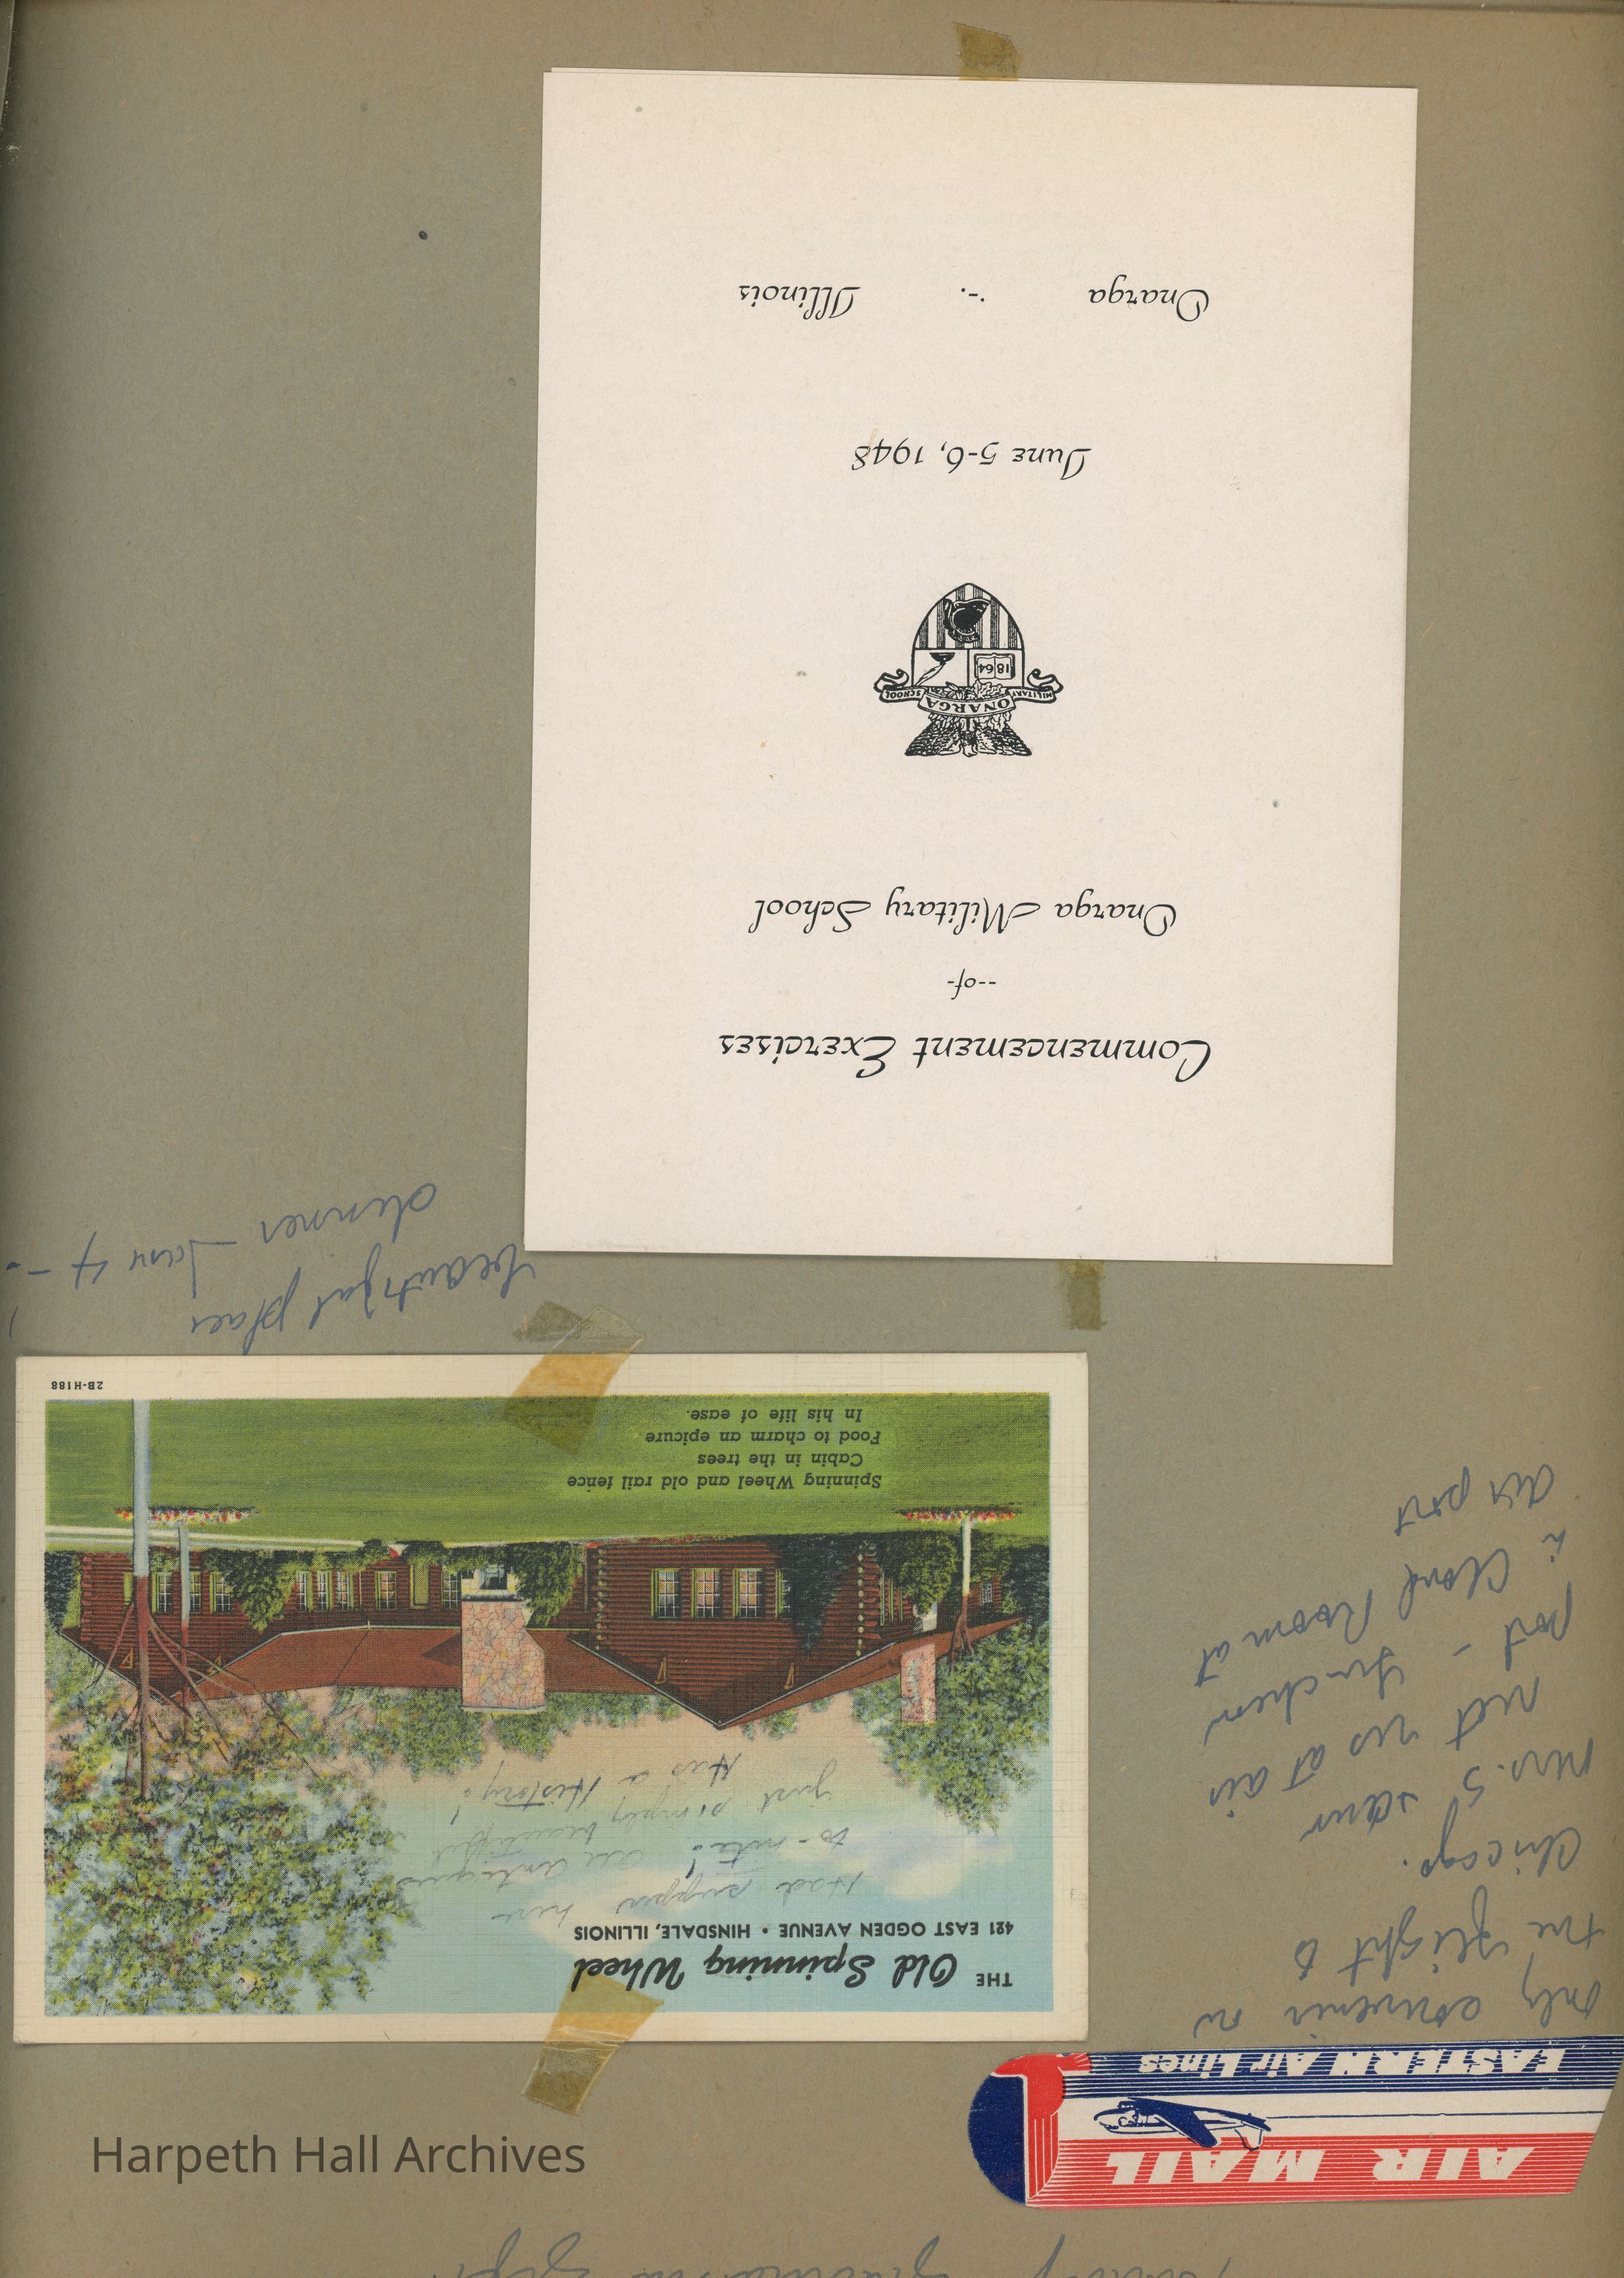 AIR MAIL
EASTERN Air Lines
only souvenir on
the flight to
Chicago.
Mrs. S
met us at air
port - luncheon
in Cloud Room at
air port
THE Old Spinning Wheel
421 EAST OGDEN AVENUE • HINSDALE, ILLINOIS
Had supper here
to-nite! all antiques
just simply beautiful
Has a History!
Spinning Wheel and old rail fence
Cabin in the trees
Food to charm an epicure
In his life of ease.
2B-H188
beautiful place
dinner - June 4 -
Commencement Exercises
--of-
Onarga Military School
ONARGA
MILITARY SCHOOL
1864
June 5-6, 1948
Onarga -:- Illinois
Harpeth Hall Archives